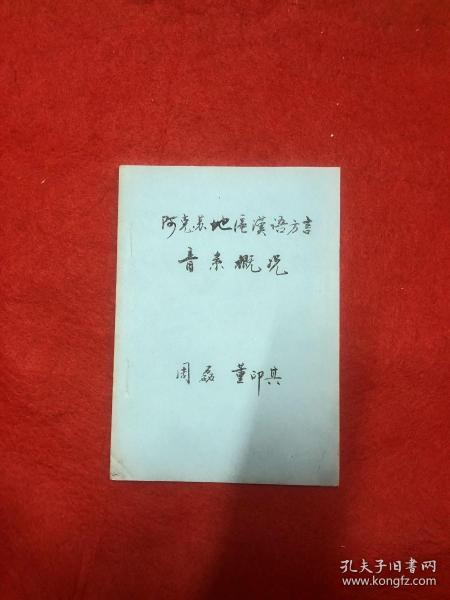 阿克苏地區漢语方言
音系概况
周磊 董印其
孔夫子旧书网
www.kongfz.com